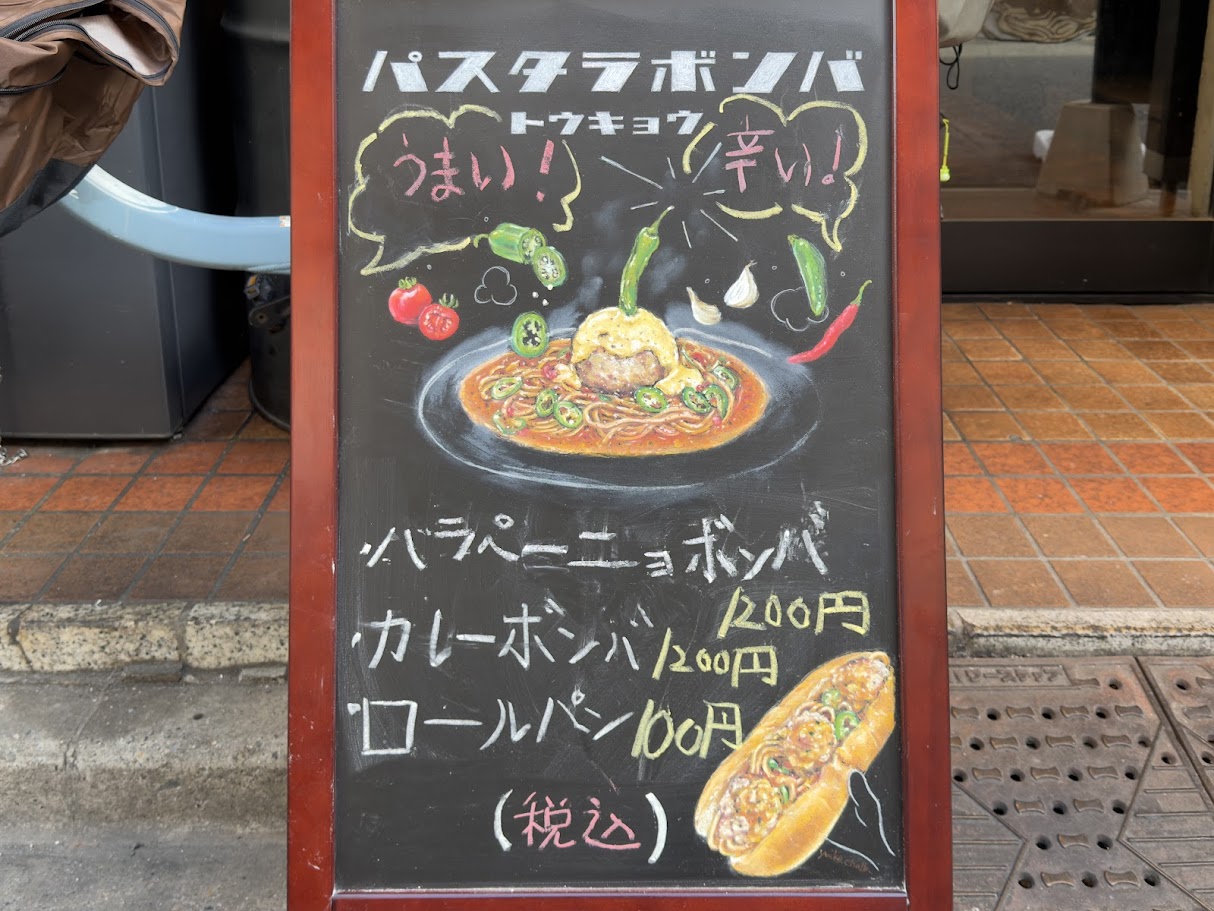 パスタラボンバ
トウキョウ
うまい!
辛い!
・ハラペーニョボンバ
1200円
・カレーボンバ 1200円
・ロールパン 100円
(税込)